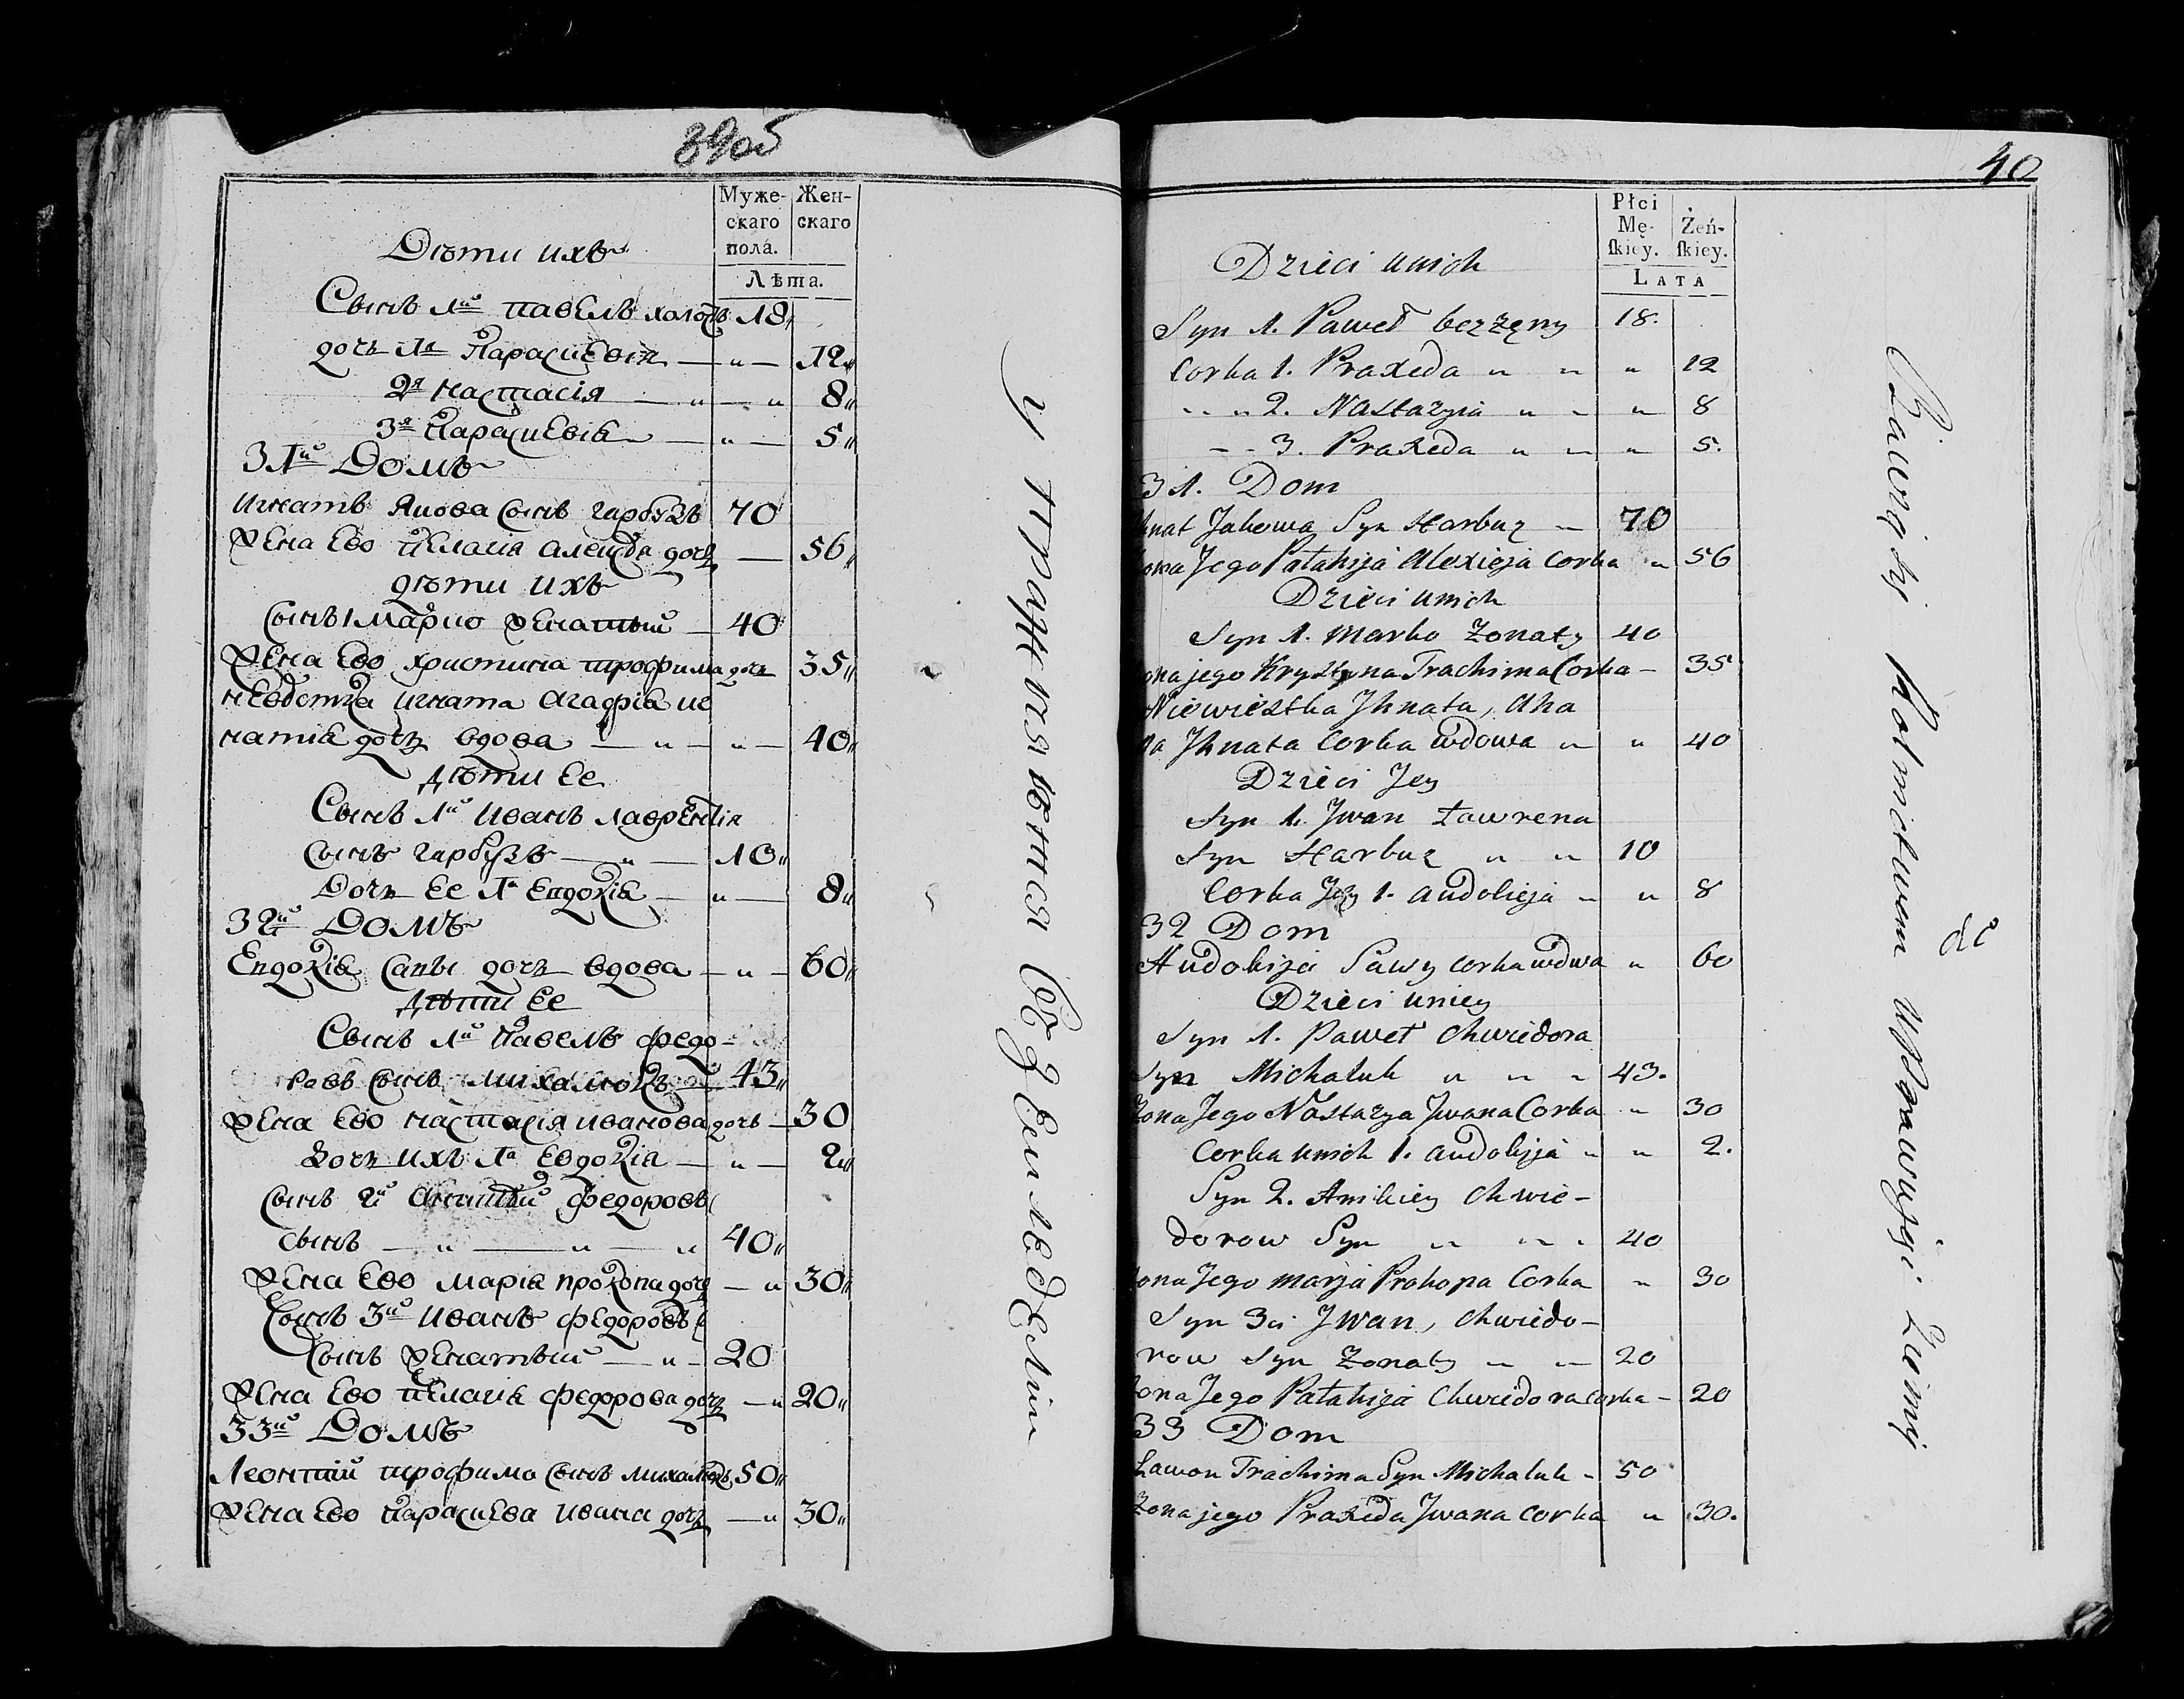 39об
Муже-
скаго
пола.
Жен-
скаго
Лѣта.
Дѣти ихъ
Сынъ 1й Павелъ холостъ 18
дочь 1я Параскевія — " — 12
2я Настасія — " — " 8
3я Параскевія — " — 5
31й Домъ
Игнатъ Яковa Сынъ Гарбузъ 70
Жена Ево Пелагія Алексѣя дочь — 56
дѣти ихъ
Сынъ 1 Марко Женатый — 40
Жена Ево Христина Трофима дочь 35
Невѣстка Игната Агафія Иг
натія дочь вдова — " — " — 40
Дѣти Ее
Сынъ 1й Иванъ Лаврентія
Сынъ Гарбузъ — " — 10
Дочь Ее 1я Евдокія — " — 8
32й Домъ
Евдокія Савы дочь вдова — " — 60
Дѣти Ее
Сынъ 1й Павелъ Федо-
ровъ Сынъ Михалюкъ — 43
Жена Ево Настасія Иванова дочь — 30
Дочь ихъ 1я Евдокія — " — 2
Сынъ 2й Федоровъ
Сынъ — " — " — " 40
Жена Ево Марія Прокопа дочь — " 30
Сынъ 3й Иванъ Федоровъ
Сынъ Женатый — " — 20
Жена Ево Пелагія Федорова дочь — " 20
33й Домъ
Леонтій Трофима Сынъ Михалюкъ 50
Жена Ево Параскева Ивана дочь — " 30
упражняются
40
Płci
Mę-
skiey.
Żeń-
skiey.
LATA
Dzieci unich
Syn 1. Paweł bezżęny 18.
Corka 1. Praxeda " " " 12
" " 2. Nastazyia " " " 8
- - 3. Praxeda " " " 5.
31. Dom
hnat Jakowa Syn Harbuz — 70
ona Jego Pałahija Alexieja Corka " 56
Dzieci unich
Syn 1. Marko Zonaty 40
ona jego Krystyna Trachima Corka — 35
Niewiestka Jhnata, Aha
a Jhnata Corka wdowa " " 40
Dzieci Jey
Syn 1. Jwan Ławrena
Syn Harbuz " " 10
Corka Jey 1. Audokieja " " 8
32 Dom
Audokija Sawy corka wdwa " 60
Dzieci uniey
Syn 1. Paweł Chwiedora
Syn Michaluk " " " 43.
Zona Jego Nastazya Jwana Corka " 30
Corka unich 1. Audokija " " 2.
Syn 2. Anikiey Chwie-
dorow Syn " " " 40
ona Jego Marja Prokopa Corka " 30
Syn 3ci Jwan, Chwiedo-
row Syn Zonaty " " 20
ona Jego Pałahija Chwiedora Corka — 20
33 Dom
Lawon Trachima Syn Michaluk - 50
Zona jego Praxeda Jwana Corka " 30.